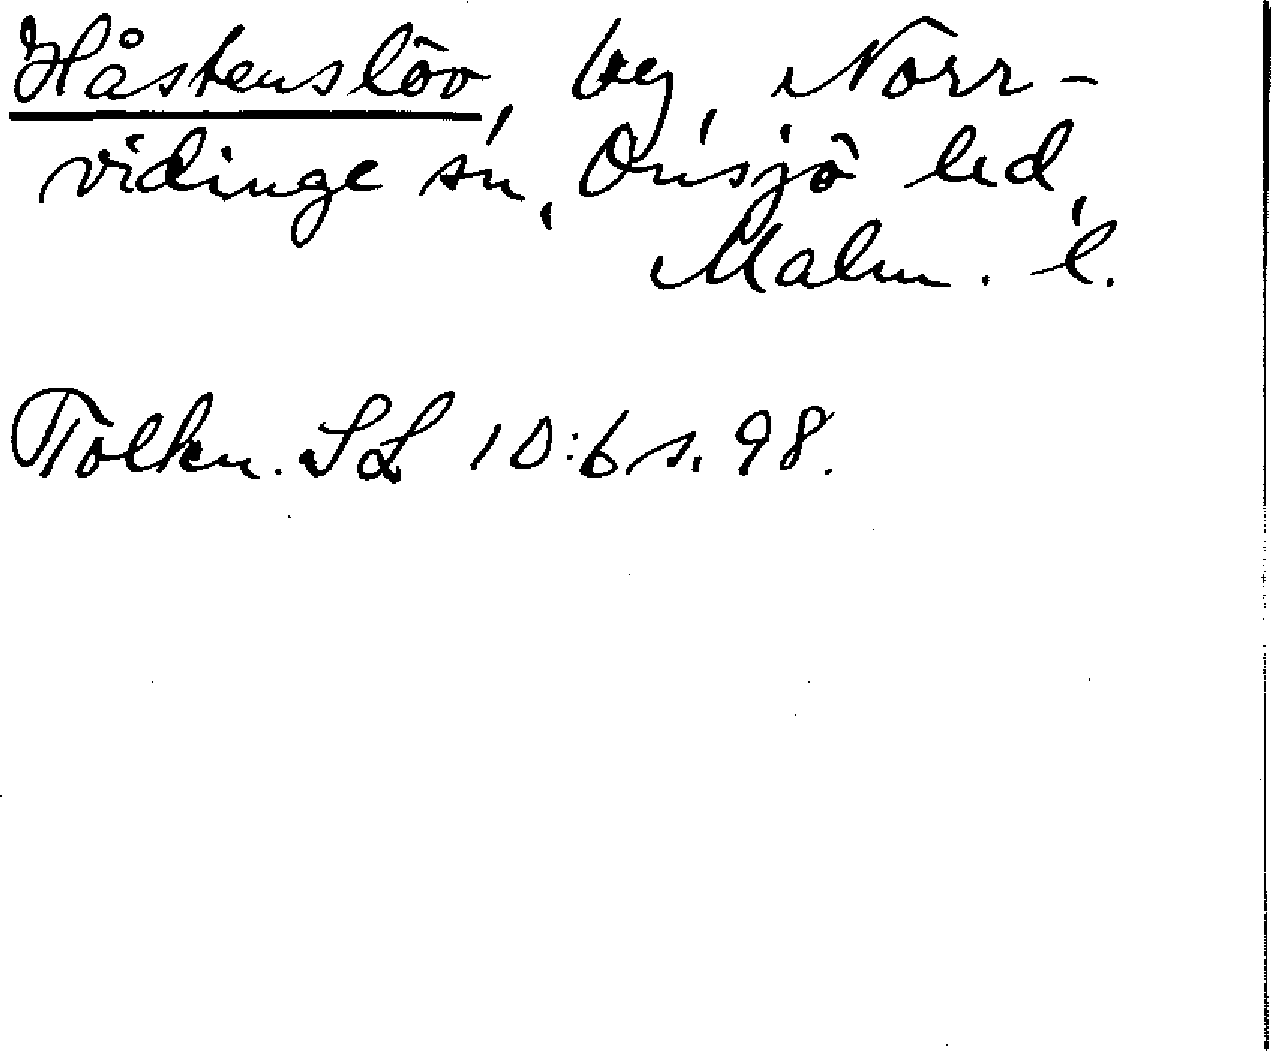 Håstenslöv, by, Norr-
vidinge sn, Onsjö hd,
Malm. l.
Tolkn. SL 10:6 s. 98.